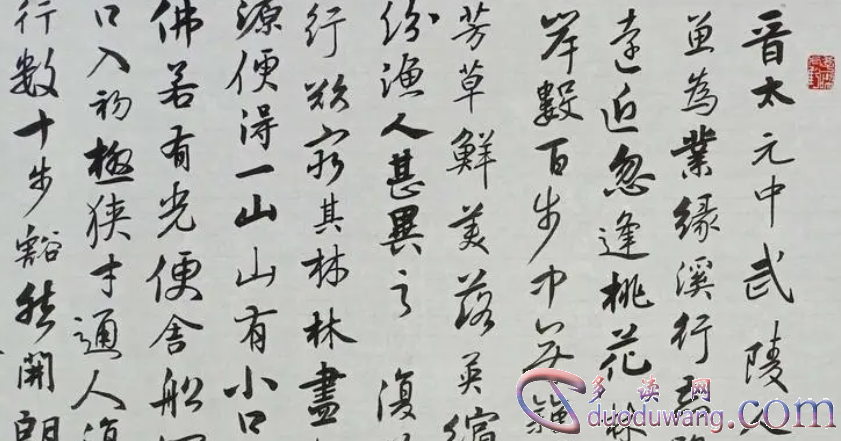 晉太元中武陵人
魚為業緣溪行忘路
遠近忽逢桃花林
岸數百步中無雜
芳草鮮美落英繽
紛漁人甚異之復
行欲窮其林林盡
源便得一山山有小口
彿若有光便舍船
口入初極狹才通人復
行數十步豁然開朗
多读网
duoduwang.com